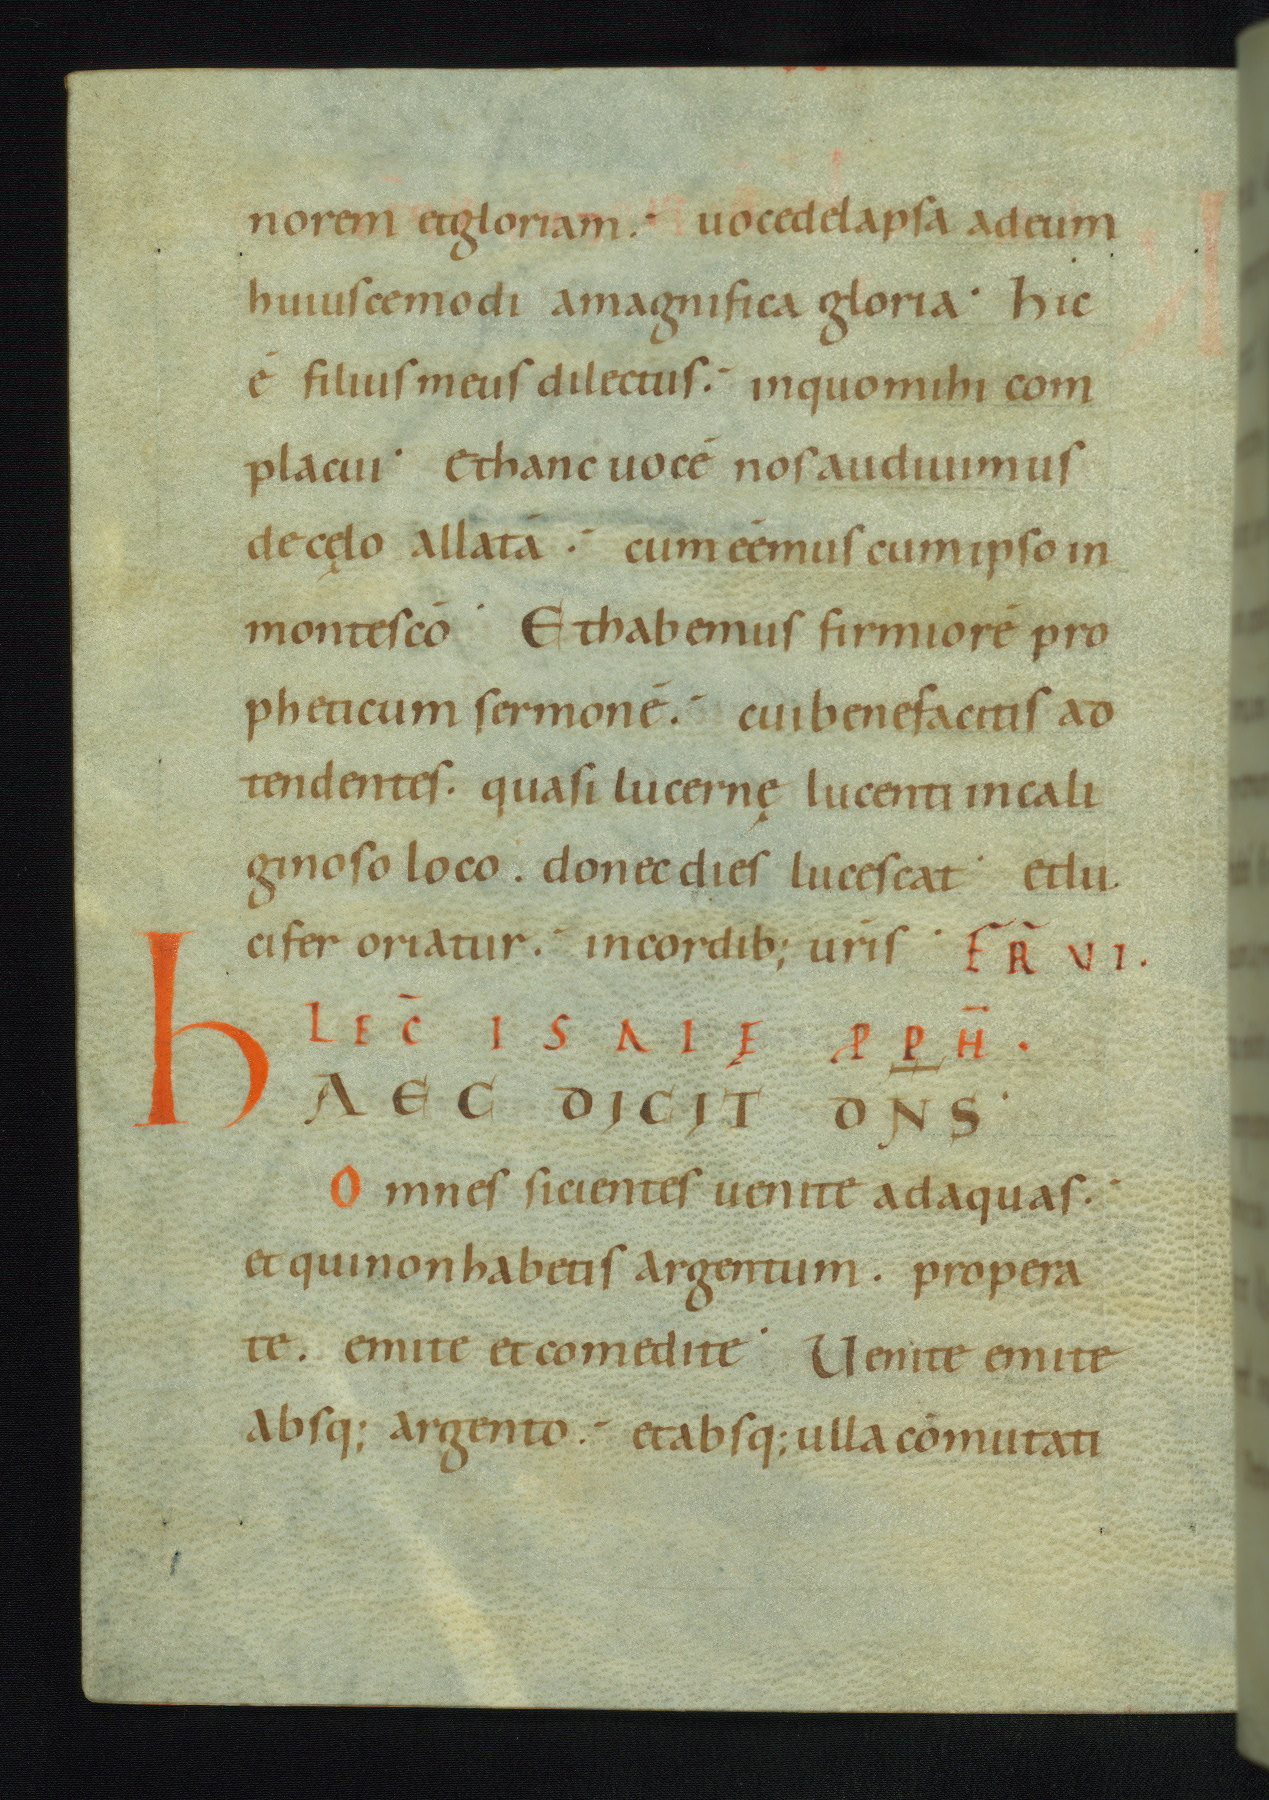 norem et gloriam. uoce delapsa ad eum
huiuscemodi a magnifica gloria. hic
ē filius meus dilectus. in quo mihi com
placui. Et hanc uocē nos audiuimus
de cęlo allatā. cum eēmus cum ipso in
monte scō. Et habemus firmiorē pro
pheticum sermonē. cui bene facitis ad
tendentes. quasi lucernę lucenti in cali
ginoso loco. donec dies lucescat. et lu
cifer oriatur. in cordib; uris̄. FR̄ VI.
LEC̄ ISAIĘ PPH̄.
hAEC DICIT DNS.
Omnes sicientes uenite ad aquas.
et qui non habetis argentum. propera
te. emite et comedite. Uenite emite
absq; argento. et absq; ulla cōmutati